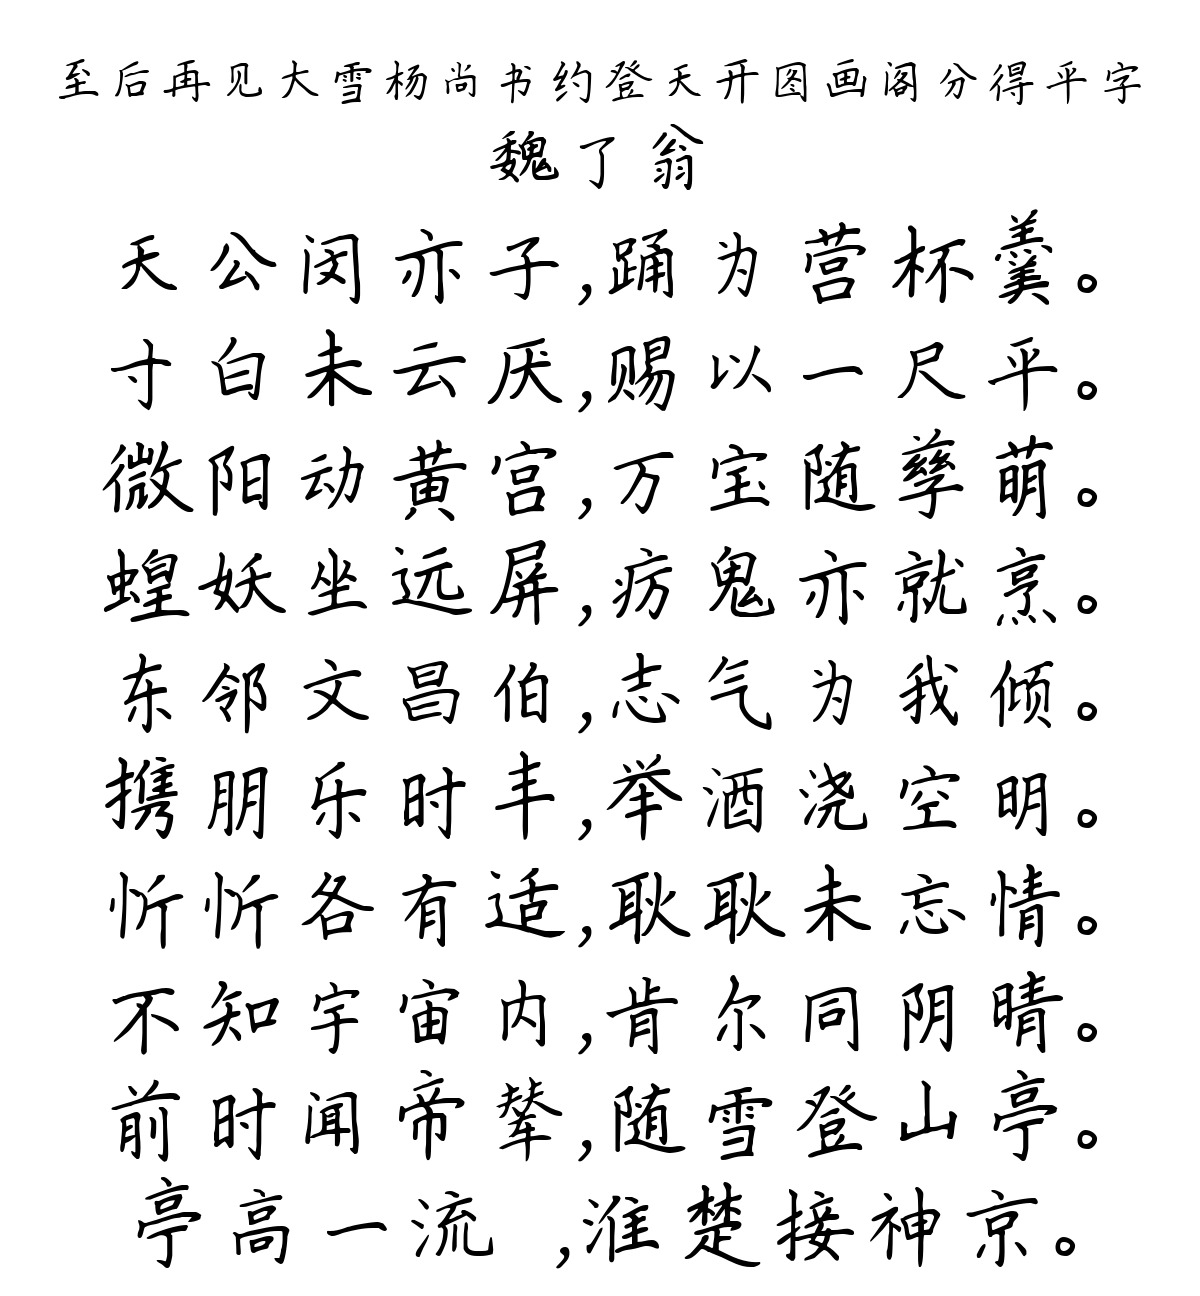 至后再见大雪杨尚书约登天开图画阁分得平字
魏了翁
天公闵亦子,踊为营杯羹。
寸白未云厌,赐以一尺平。
微阳动黄宫,万宝随孳萌。
蝗妖坐远屏,疠鬼亦就烹。
东邻文昌伯,志气为我倾。
携朋乐时丰,举酒浇空明。
忻忻各有适,耿耿未忘情。
不知宇宙内,肯尔同阴晴。
前时闻帝辇,随雪登山亭。
亭高一流 ,淮楚接神京。